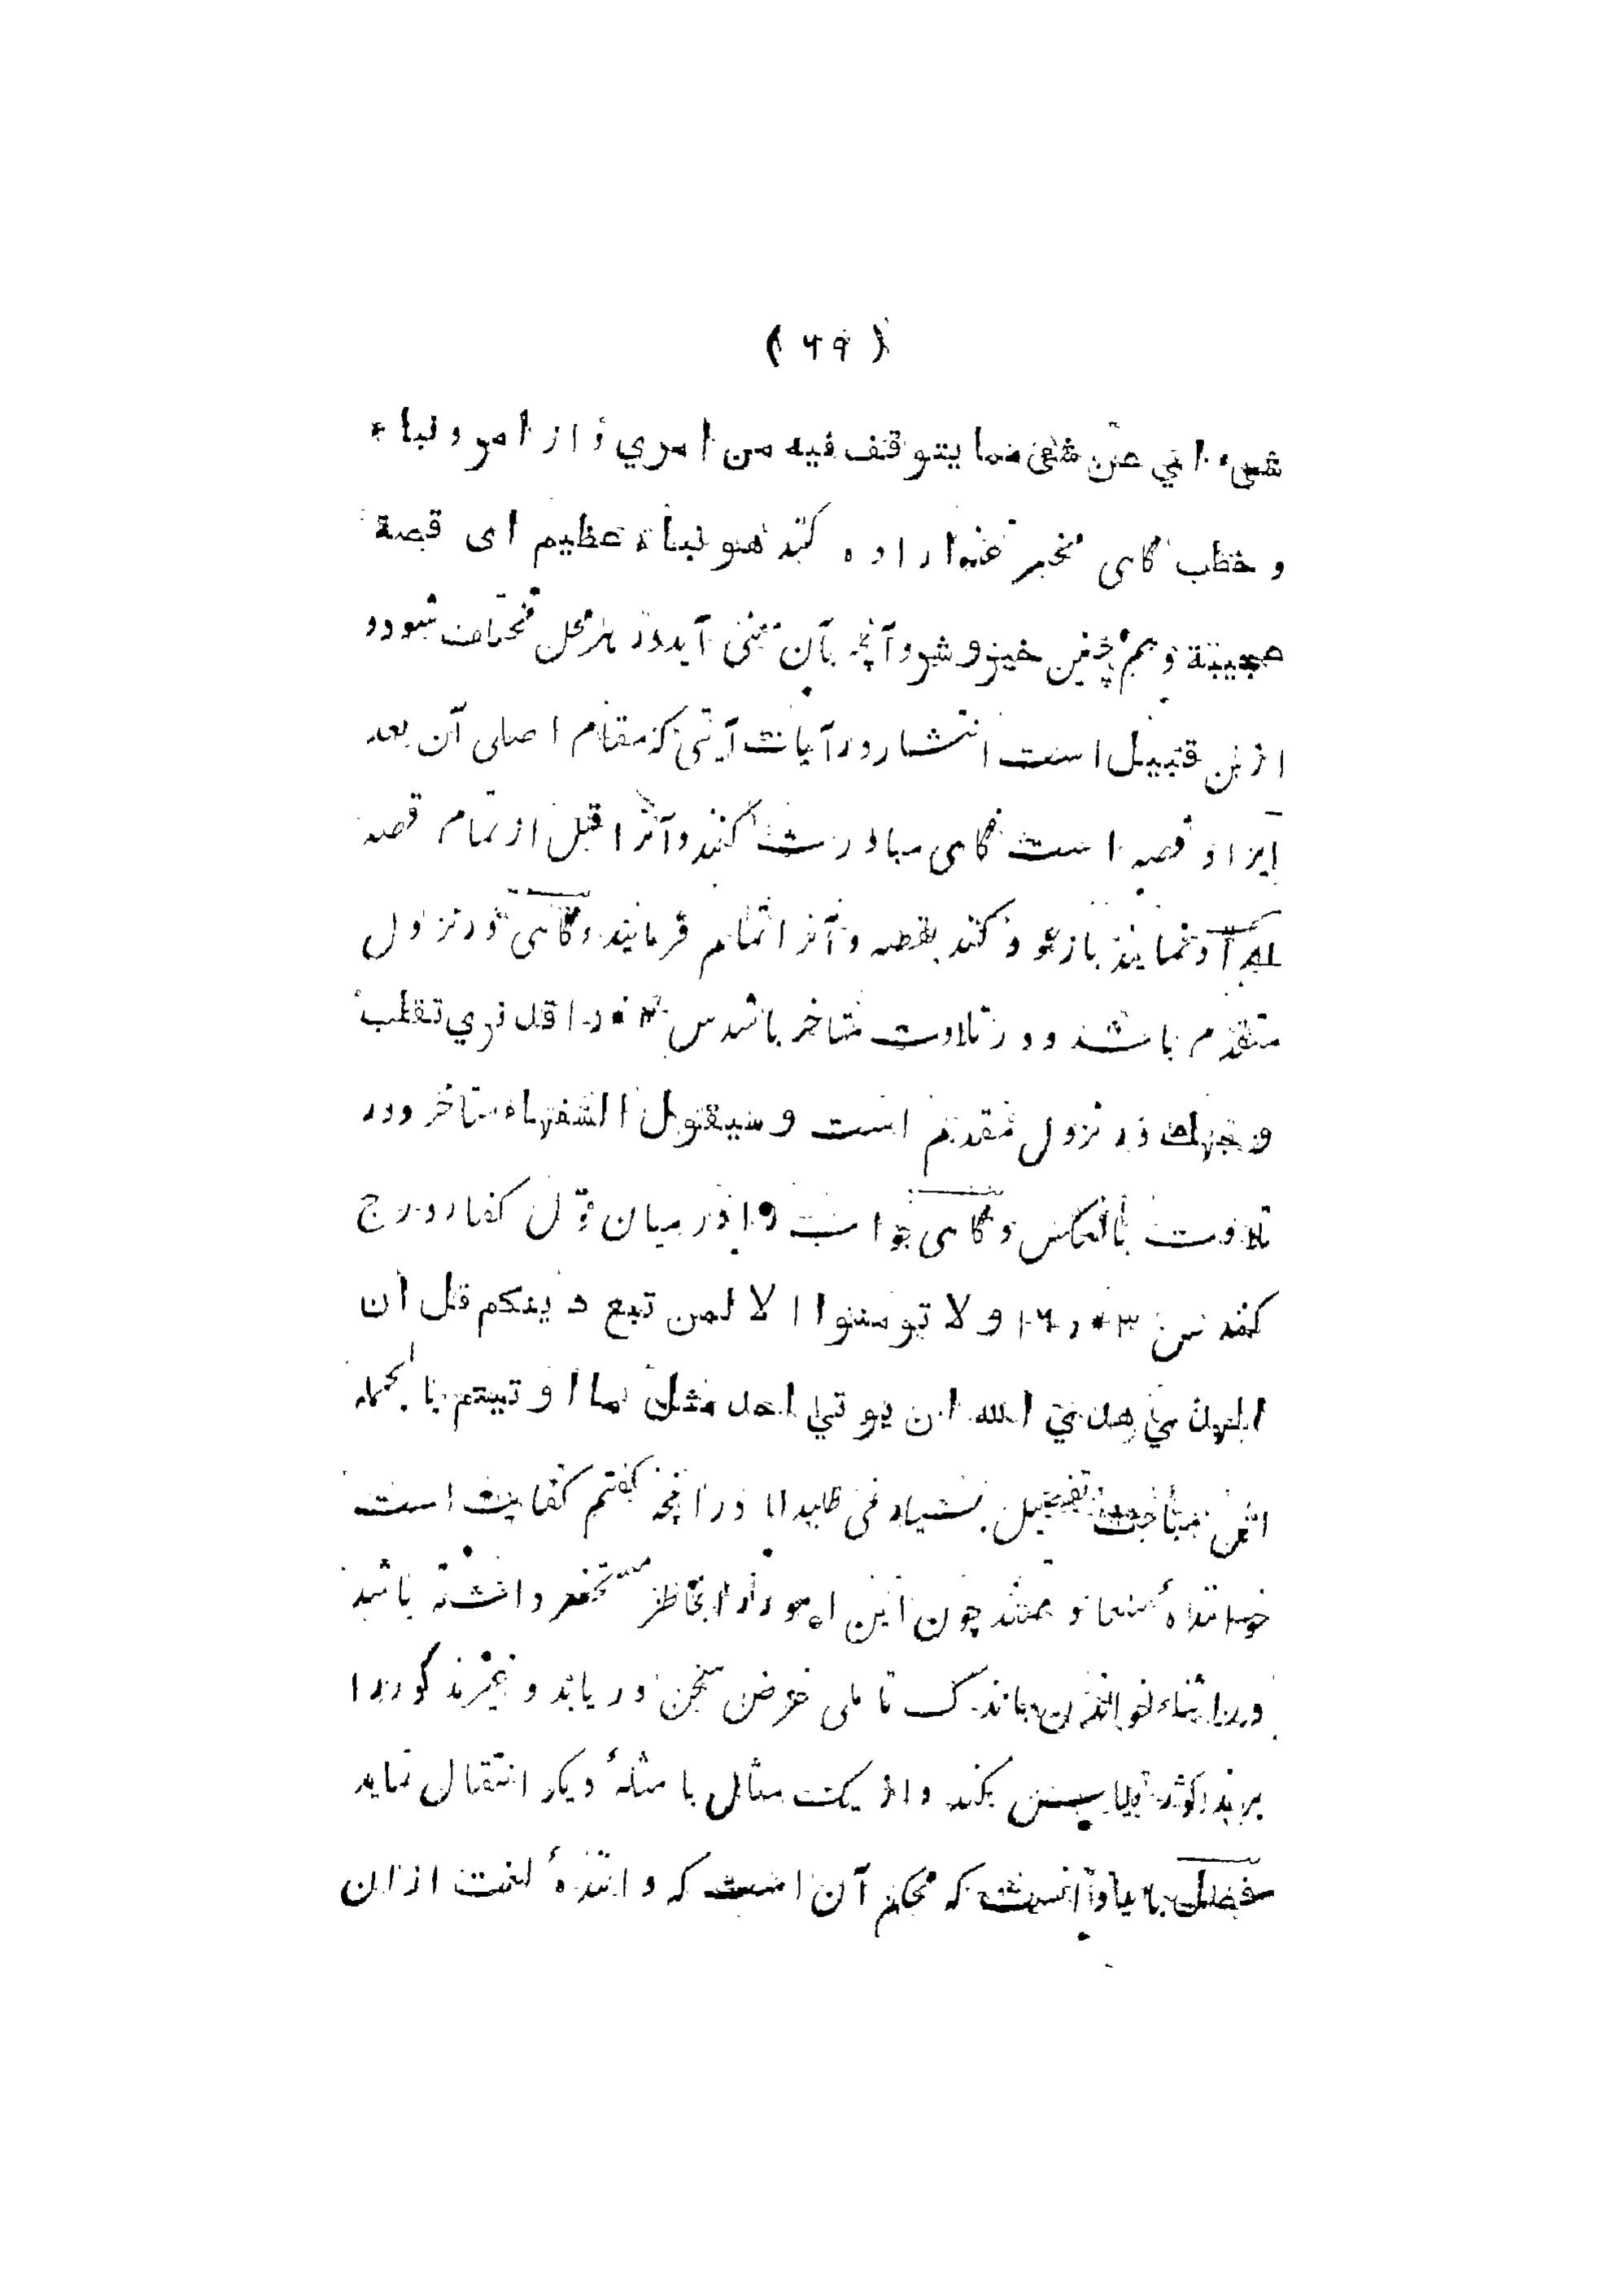 ( ٦٩ )
شيء اي عن شئ مما يتوقف فيه من امري و از امر و نباء
و خطب گاهی مخبر عنه اراده کند هو نباء عظیم ای قصة
عجيبة و هم چنین خیر و شر و آنچه بآن معنی آید در هر محل مختلف شود و
ازین قبیل است انتشار در آیات آیتی که مقام اصلی آن بعد
ایراد قصه است گاهی مبادرت کنند و آنرا قبل از تمام قصه
نمایند باز عود کنند بقصه و آنرا تمام فرمایند و گاهی در نزول
متقدم باشد و در تلاوت متاخر باشد س ۲ ر۰ ا قد نري تقلب
وجهك در نزول مقدم است و سيقول السفهاء متاخر و در
تلاوت بالعکس و گاهی جواب را در میان قول کفار درج
کنند س ۳ ر۰ ١٦ و لا تومنوا الا لمن تبع دينكم قل ان
الهدي هدي الله ان يوتي احد مثل ما اوتيتم بالجمله
این مباحث تفصیل بسیار می طلبد اما در آنچه گفتم کفایت است
خواننده سعادتمند چون این امور را بخاطر مستحضر داشته باشد
در اثناء خواندن باندک تاملی غرض سخن دریابد و غیر مذکور را
بر مذکور قیاس بکند و از یک مثال با مثلهٔ دیگر انتقال نماید
فصل باید دانست که محکم آن است که دانندهٔ لغت ازان